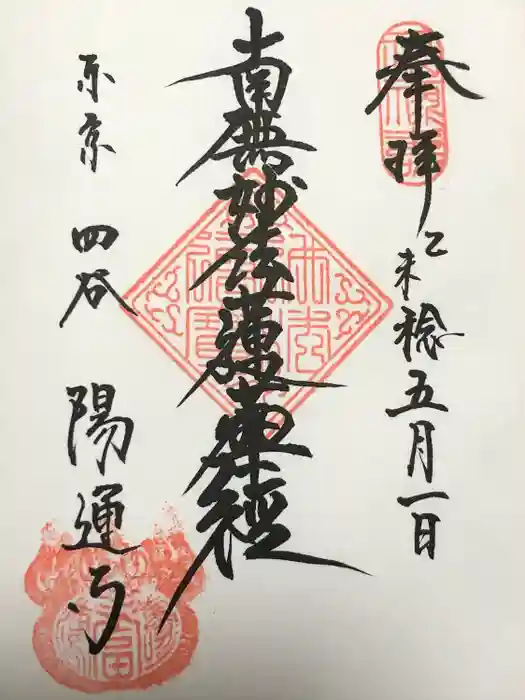 奉拝
乙未稔五月一日
南無妙法蓮華経
東京
四谷
陽運寺